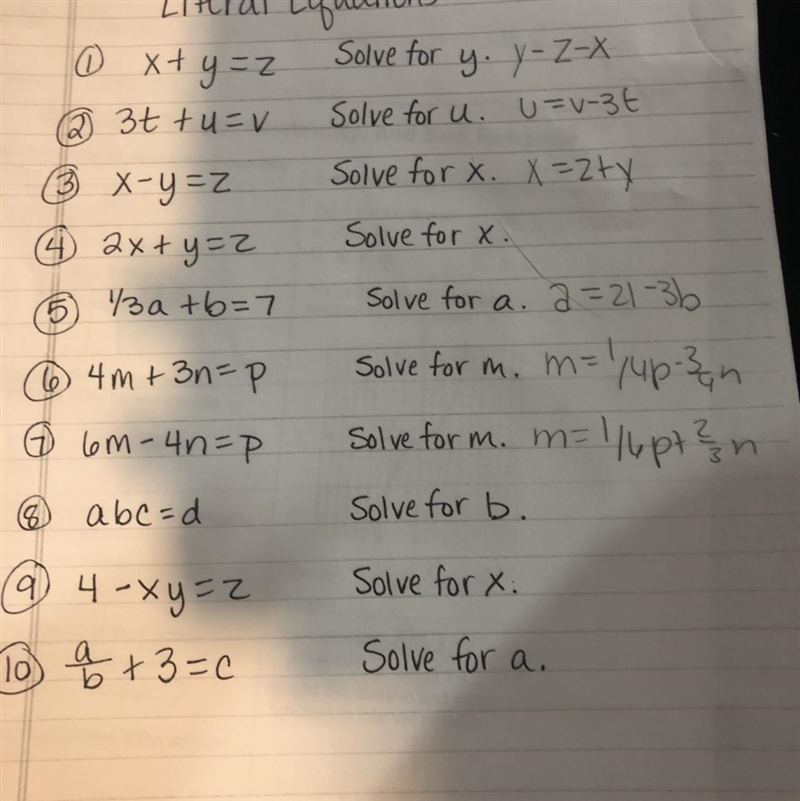 Literal Equations
① x + y = z Solve for y. y - z - x
② 3t + u = v Solve for u. u = v - 3t
③ x - y = z Solve for x. x = z + y
④ 2x + y = z Solve for x.
⑤ 1/3a + b = 7 Solve for a. a = 21 - 3b
⑥ 4m + 3n = p Solve for m. m = 1/4p - 3/4n
⑦ 6m - 4n = p Solve for m. m = 1/6p + 2/3n
⑧ abc = d Solve for b.
⑨ 4 - xy = z Solve for x.
⑩ a/b + 3 = c Solve for a.